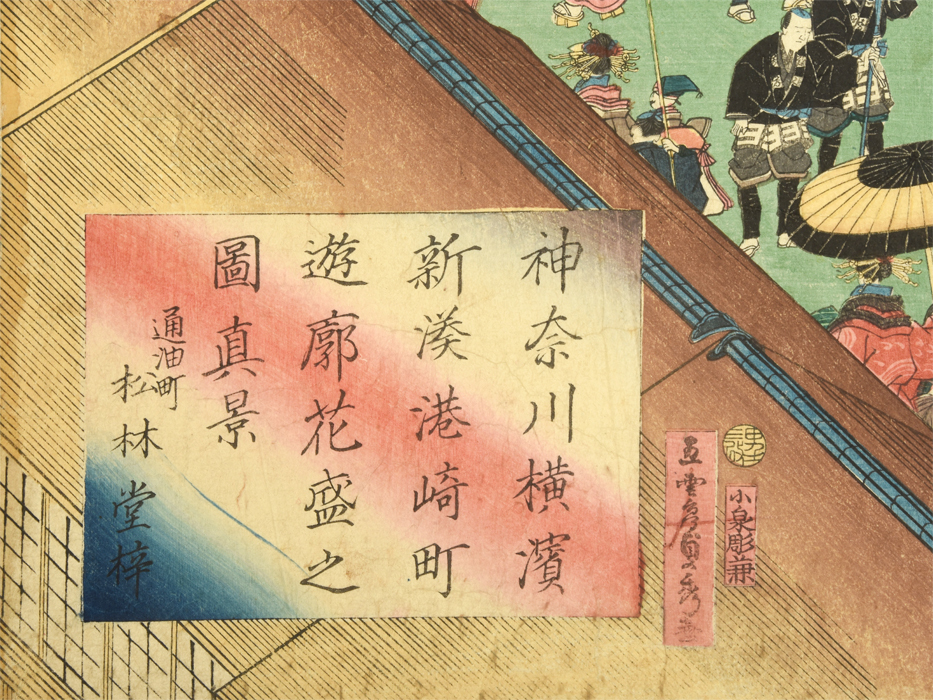 神奈川横濱
新湊港崎町
遊廓花盛之
圖真景
通油町
松林堂梓
五雲亭貞秀畫
小泉彫兼